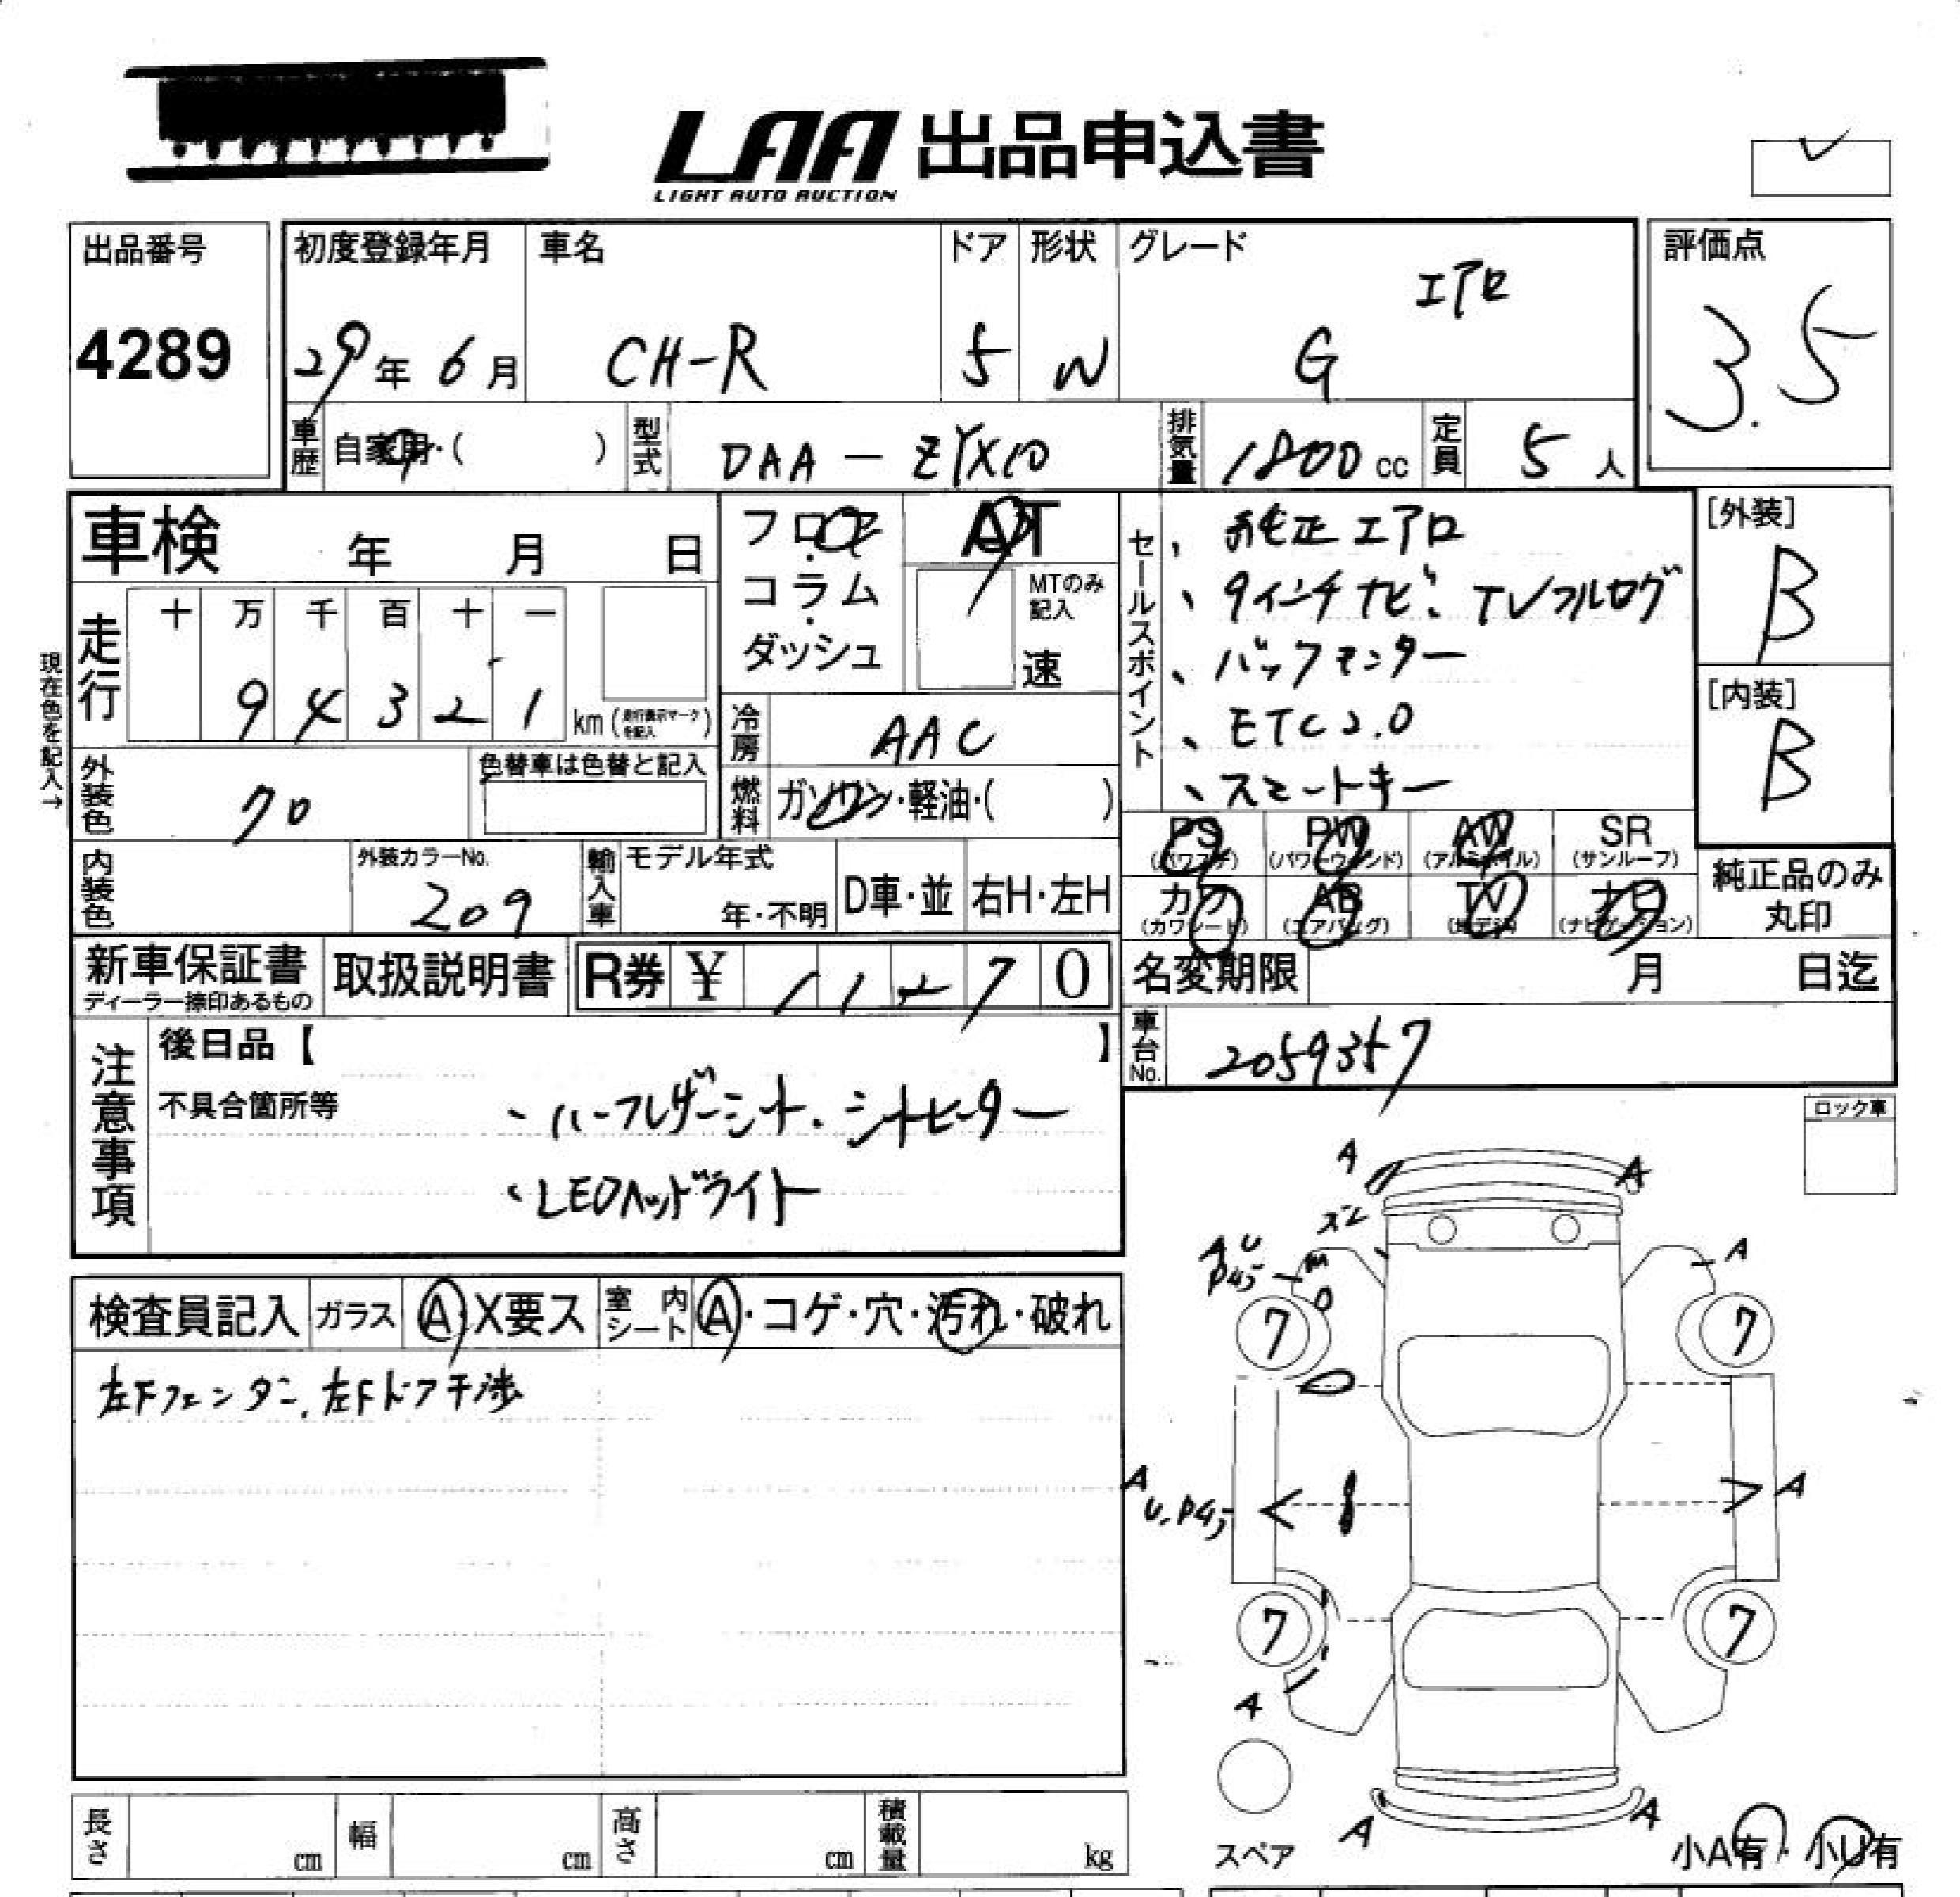 LAA 出品申込書
LIGHT AUTO AUCTION
出品番号
4289
初度登録年月
29年6月
車名
CH-R
ドア
5
形状
W
グレード
エアロ
G
評価点
3.5
車歴
自家用・( )
型式
DAA-ZYX10
排気量
1800cc
定員
5人
車検 年 月 日
フロア・コラム・ダッシュ
AT
MTのみ記入
速
セールスポイント
、純正エアロ
、9インチナビ、TVフルセグ
、バックモニター
、ETC2.0
、スマートキー
[外装]
B
[内装]
B
現在色を記入→
走行
十 万 千 百 十 一
9 4 3 2 1
km(走行表示マークを記入)
冷房
AAC
外装色
クロ
色替車は色替と記入
燃料
ガソリン・軽油・( )
PS PW AW SR
(パワステ) (パワーウィンド) (アルミホイル) (サンルーフ)
カワ AB TV ナビ
(カワシート) (エアバッグ) (地デジ) (ナビゲーション)
純正品のみ丸印
内装色
外装カラーNo.
209
輸入車
モデル年式
年・不明
D車・並
右H・左H
新車保証書
ディーラー捺印あるもの
取扱説明書
R券 ¥ 11270
名変期限 月 日迄
車台No.
2059357
注意事項
後日品【 】
不具合箇所等
、ハーフレザーシート、シートヒーター
、LEDヘッドライト
ロック車
検査員記入
ガラス
A・X要ス
室内シート
A・コゲ・穴・汚れ・破れ
左Fフェンダー、左Fドア干渉
A A
A U
A
7 7
A
U
A
7 7
A
A A
スペア
小A有・小U有
長さ cm
幅 cm
高さ cm
積載量 kg